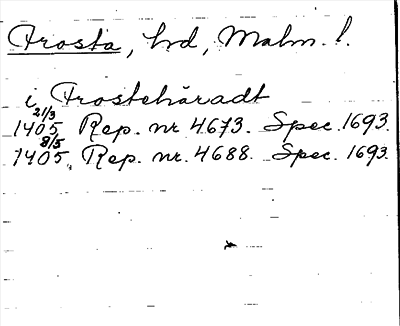 Frosta, hd, Malm. l.
i Frostehäradt
21/3
1405, Rep. nr 4673. Spec. 1693.
8/5
1405, Rep. nr. 4688. Spec. 1693.